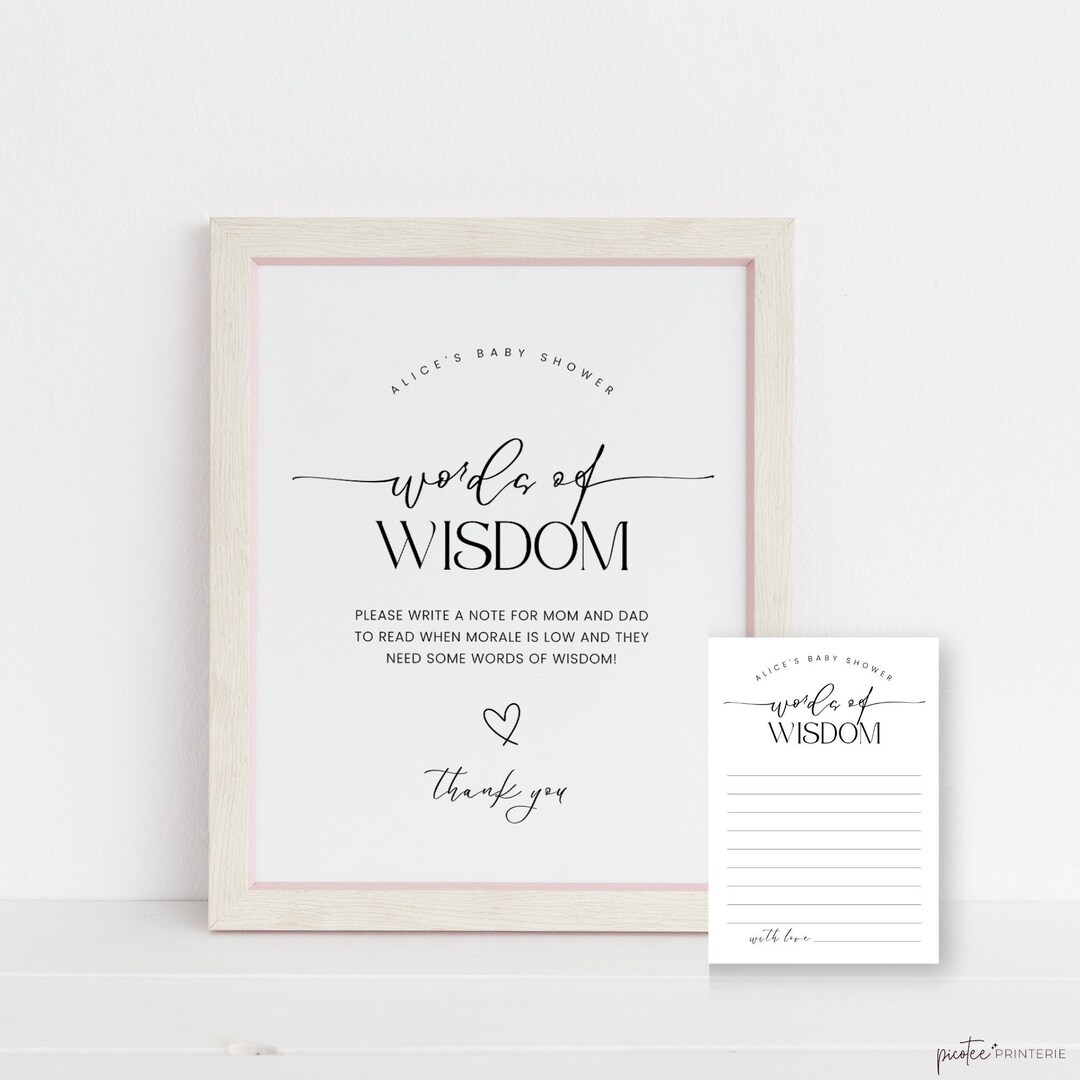 ALICE'S BABY SHOWER
words of
WISDOM
PLEASE WRITE A NOTE FOR MOM AND DAD
TO READ WHEN MORALE IS LOW AND THEY
NEED SOME WORDS OF WISDOM!
thank you
ALICE'S BABY SHOWER
words of
WISDOM
with love
picotee PRINTERIE